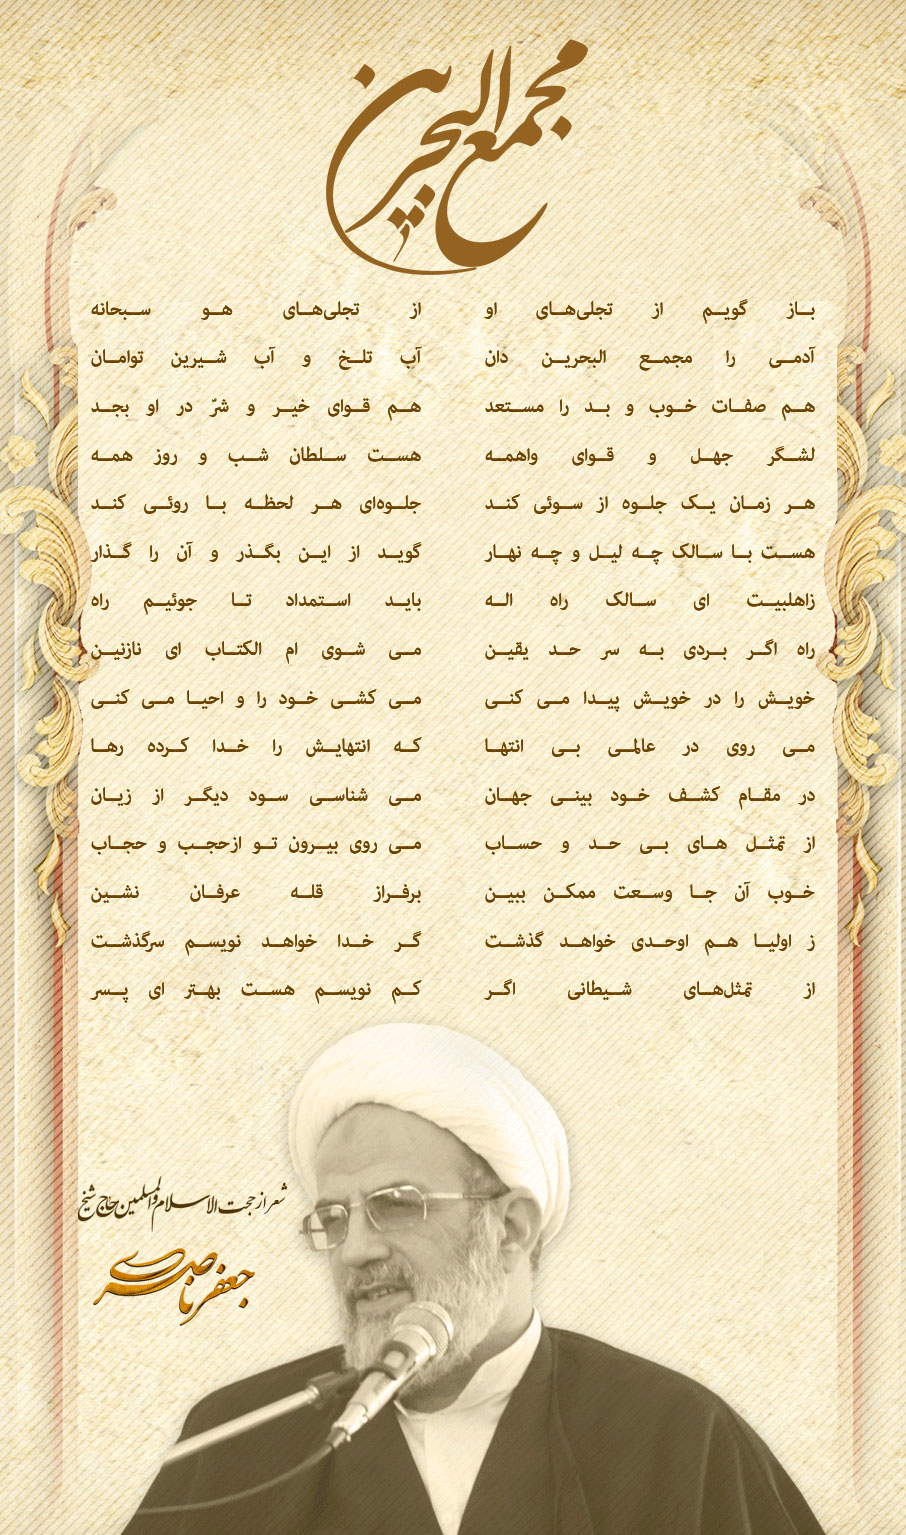 مجمع البحرین
باز گویم از تجلی‌های او از تجلی‌های هو سبحانه
آدمی را مجمع البحرین دان آب تلخ و آب شیرین توامان
هم صفات خوب و بد را مستعد هم قوای خیر و شرّ در او بجد
لشگر جهل و قوای واهمه هست سلطان شب و روز همه
هر زمان یک جلوه از سوئی کند جلوه‌ای هر لحظه با روئی کند
هست با سالک چه لیل و چه نهار گوید از این بگذر و آن را گذار
زاهلبیت ای سالک راه اله باید استمداد تا جوئیم راه
راه اگر بردی به سر حد یقین می شوی ام الکتاب ای نازنین
خویش را در خویش پیدا می کنی می کشی خود را و احیا می کنی
می روی در عالمی بی انتها که انتهایش را خدا کرده رها
در مقام کشف خود بینی جهان می شناسی سود دیگر از زیان
از تمثل های بی حد و حساب می روی بیرون تو ازحجب و حجاب
خوب آن جا وسعت ممکن ببین برفراز قله عرفان نشین
ز اولیا هم اوحدی خواهد گذشت گر خدا خواهد نویسم سرگذشت
از تمثل‌های شیطانی اگر کم نویسم هست بهتر ای پسر
شعر از حجت الاسلام والمسلمین حاج شیخ
جعفر ناصری